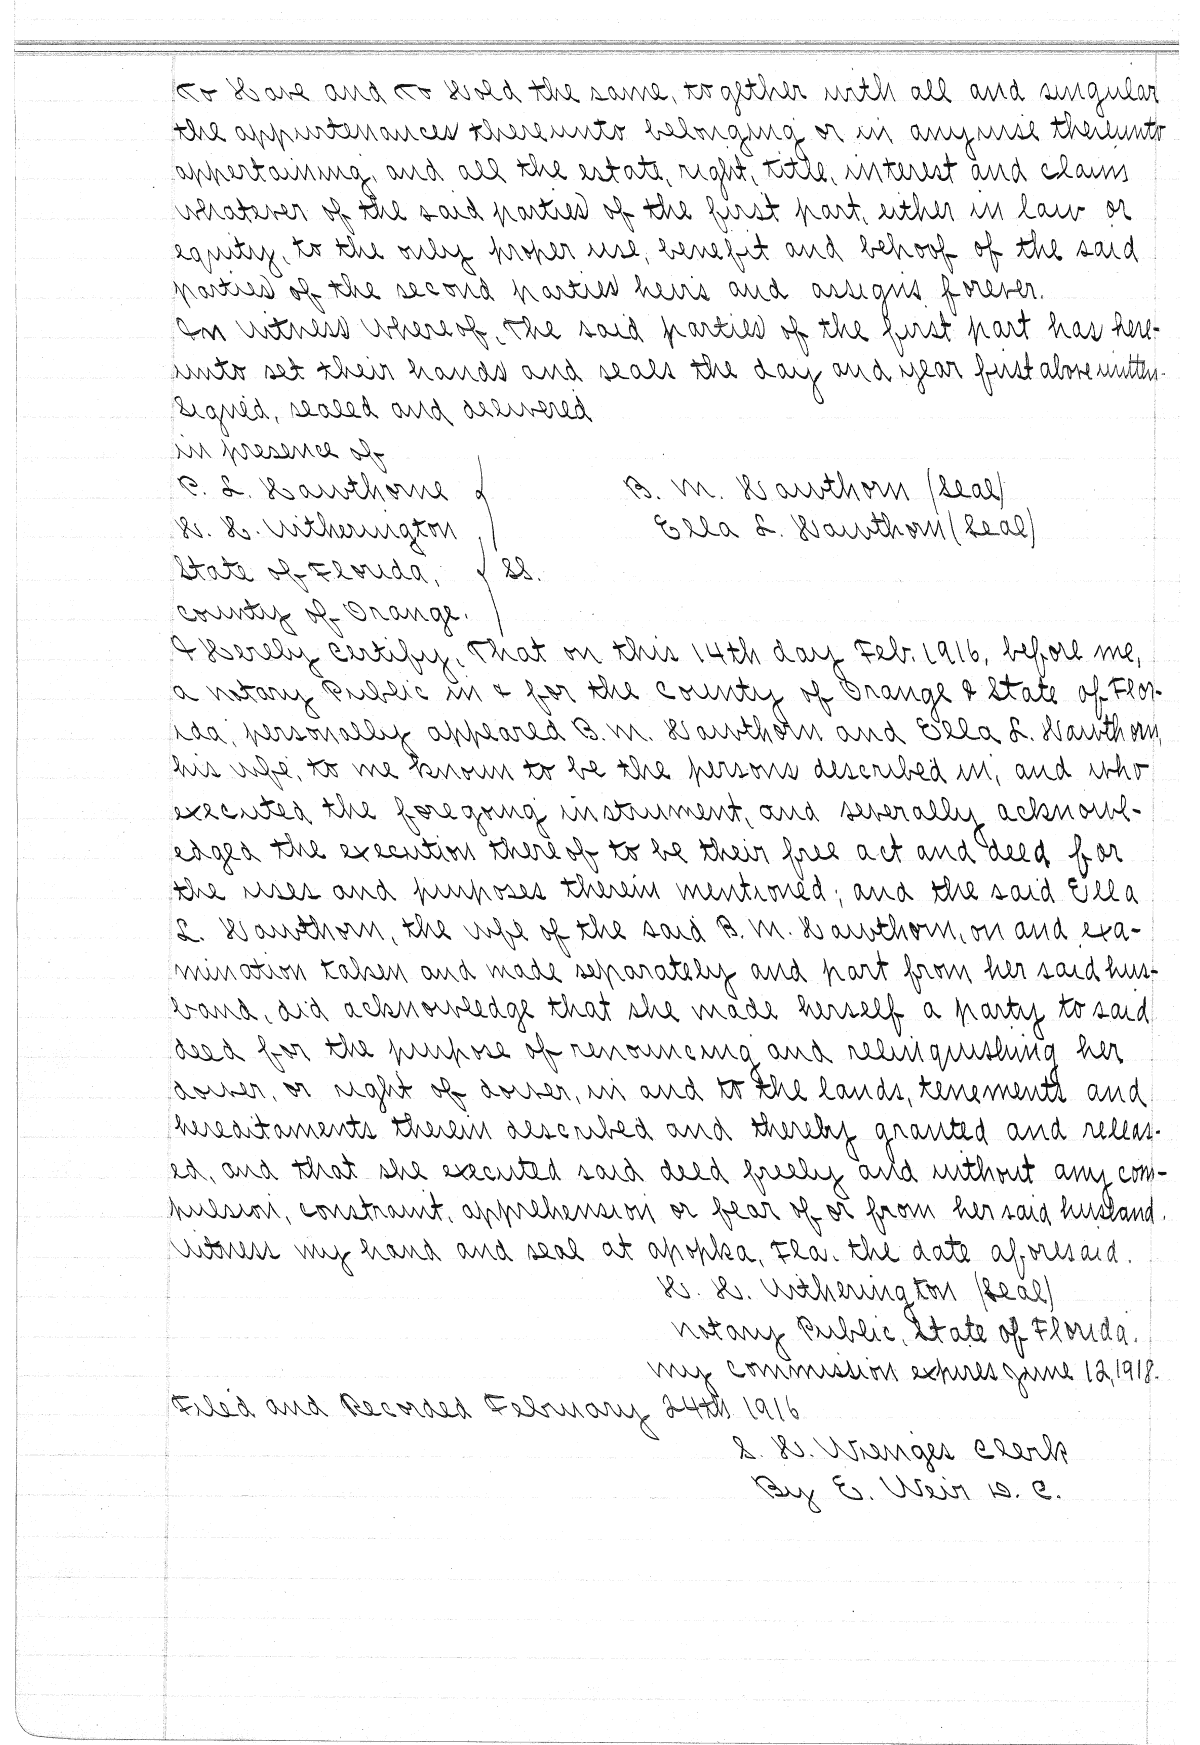 To Have and to Hold the same, together with all and singular
the appurtenances thereunto belonging or in anywise thereunto
appertaining, and all the estate, right, title, interest and claim
whatever of the said parties of the first part, either in law or
equity, to the only proper use, benefit and behoof of the said
parties of the second parties heirs and assigns forever.
In Witness Whereof, The said parties of the first part has here-
unto set their hands and seals the day and year first above written.
Signed, sealed and delivered
in presence of
C. L. Hawthorne
B. M. Hawthorn (Seal)
H. H. Witherington
Ella L. Hawthorn (Seal)
State of Florida, SS.
county of Orange.
I Hereby Certify, That on this 14th day Feb. 1916, before me,
a notary Public in & for the County of Orange & State of Flor-
ida, personally appeared B. M. Hawthorn and Ella L. Hawthorn,
his wife, to me known to be the persons described in, and who
executed the foregoing instrument, and severally acknowl-
edged the execution thereof to be their free act and deed for
the uses and purposes therein mentioned; and the said Ella
L. Hawthorn, the wife of the said B. M. Hawthorn, on and exa-
mination taken and made separately and part from her said hus-
band, did acknowledge that she made herself a party to said
deed for the purpose of renouncing and relinquishing her
dower, or right of dower, in and to the lands, tenements and
hereditaments therein described and thereby granted and releas-
ed, and that she executed said deed freely and without any com-
pulsion, constraint, apprehension or fear of or from her said husband.
Witness my hand and seal at apopka, Fla. the date aforesaid.
H. H. Witherington (Seal)
Notary Public, State of Florida.
my commission expires June 12, 1918.
Filed and Recorded February 24th 1916
B. M. Robinson Clerk
By E. Weir D. C.